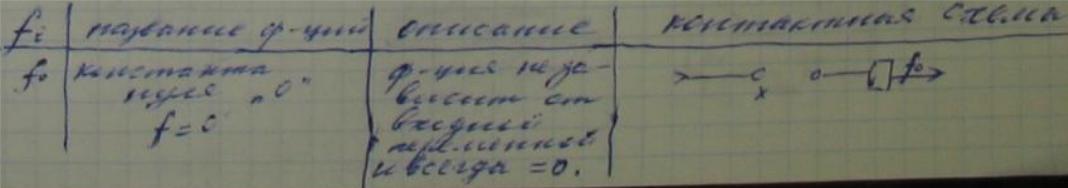 fi название ф-ций описание контактная схема
f₀ константа нуля „0“ f=0
ф-ция не за-
висит от
входной
переменной
и всегда =0.
x f₀